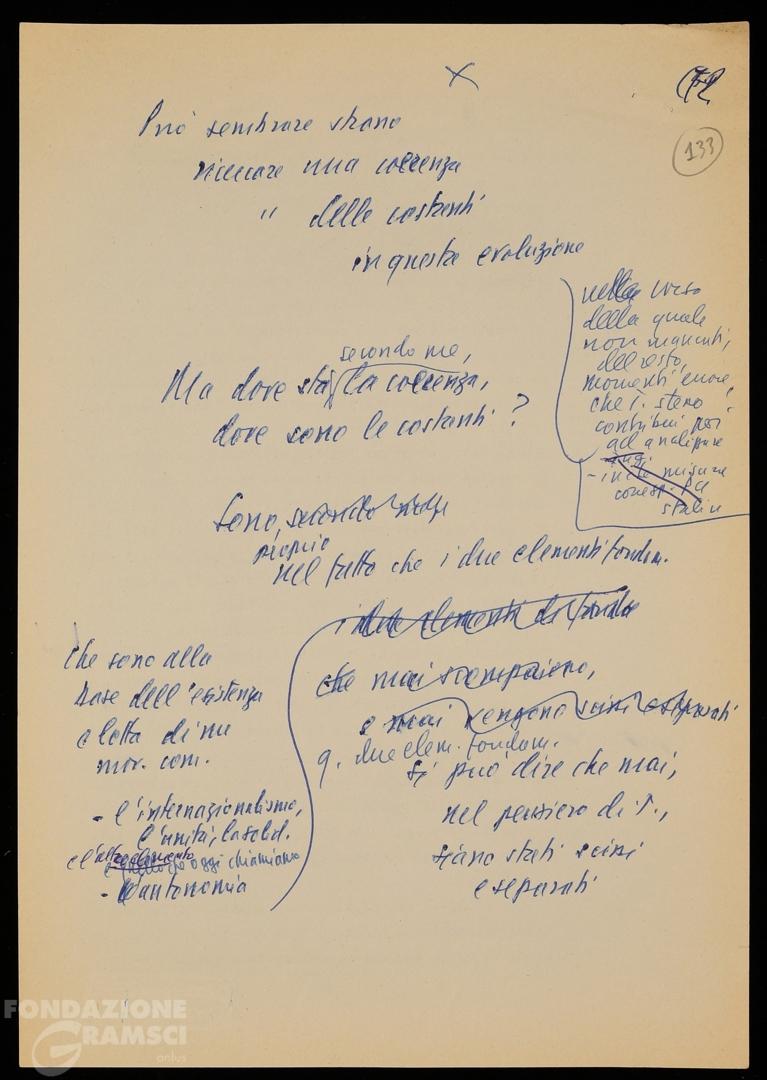 X
133
Può sembrare strano
ricercare una coerenza
" delle costanti
in questa evoluzione
nel corso
della quale
non mancati,
del resto,
momenti
che T. stesso
contribuì poi
ad analizzare
- in che misura
Stalin
secondo me,
Ma dove sta la coerenza,
dove sono le costanti?
Sono, secondo me
proprio
nel fatto che i due elementi fondam.
i due elementi di fondo
che mai scompaiono,
e mai vengono scissi e separati
che sono alla
base dell'esistenza
e lotta di un
mov. com.
- l'internazionalismo,
l'unità, la solid.
e l'altro elemento
oggi chiamiamo
- autonomia
q. due elem. fondam.
si può dire che mai,
nel pensiero di T.,
siano stati scissi
e separati
FONDAZIONE
GRAMSCI
onlus